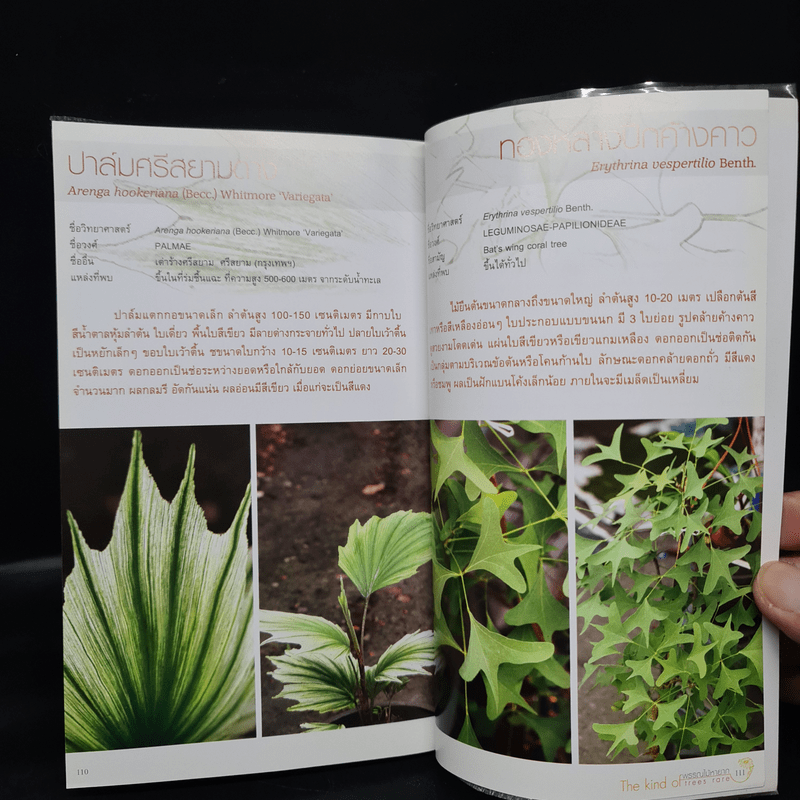 ปาล์มศรีสยามด่าง
Arenga hookeriana (Becc.) Whitmore 'Variegata'
ชื่อวิทยาศาสตร์ Arenga hookeriana (Becc.) Whitmore 'Variegata'
ชื่อวงศ์ PALMAE
ชื่ออื่น เต่าร้างศรีสยาม ศรีสยาม (กรุงเทพฯ)
แหล่งที่พบ ขึ้นในที่ร่มชื้นแฉะ ที่ความสูง 500-600 เมตร จากระดับน้ำทะเล
ปาล์มแตกกอขนาดเล็ก ลำต้นสูง 100-150 เซนติเมตร มีกาบใบ
สีน้ำตาลหุ้มลำต้น ใบเดี่ยว พื้นใบสีเขียว มีลายด่างกระจายทั่วไป ปลายใบเว้าตื้น
เป็นหยักเล็กๆ ขอบใบเว้าตื้น ขนาดใบกว้าง 10-15 เซนติเมตร ยาว 20-30
เซนติเมตร ดอกออกเป็นช่อระหว่างยอดหรือใกล้กับยอด ดอกย่อยขนาดเล็ก
จำนวนมาก ผลกลมรี อัดกันแน่น ผลอ่อนมีสีเขียว เมื่อแก่จะเป็นสีแดง
110
ทองหลางปีกค้างคาว
Erythrina vespertilio Benth.
ชื่อวิทยาศาสตร์ Erythrina vespertilio Benth.
LEGUMINOSAE-PAPILIONIDEAE
Bat's wing coral tree
แหล่งที่พบ ขึ้นได้ทั่วไป
ไม้ยืนต้นขนาดกลางถึงขนาดใหญ่ ลำต้นสูง 10-20 เมตร เปลือกต้นสี
หรือสีเหลืองอ่อนๆ ใบประกอบแบบขนนก มี 3 ใบย่อย รูปคล้ายค้างคาว
สวยงามโดดเด่น แผ่นใบสีเขียวหรือเขียวแกมเหลือง ดอกออกเป็นช่อติดกัน
เป็นกลุ่มตามบริเวณข้อต้นหรือโคนก้านใบ ลักษณะดอกคล้ายดอกถั่ว มีสีแดง
ผลเป็นฝักแบนโค้งเล็กน้อย ภายในจะมีเมล็ดเป็นเหลี่ยม
The kind of พรรณไม้หายาก trees rare 111